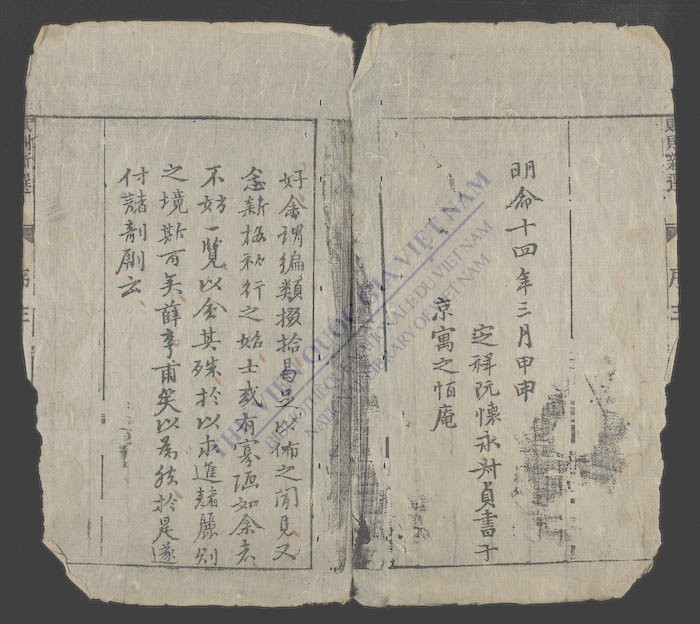 明命十四年三月甲申
定祥阮懷永對貞書于
京寓之恬庵
好余謂編類掇拾曷足以佈之聞見又
念新格初行之始士或有寡陋如余者
不妨一覽以会其殊於以求進諸麗則
之境斯可矣薛亭甫笑以為然於是遂
付諸剞劂云
THƯ VIỆN QUỐC GIA VIỆT NAM
BIBLIOTHEQUE NATIONALE DU VIETNAM
NATIONAL LIBRARY OF VIETNAM